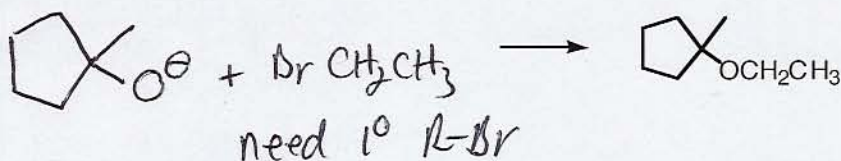 O⊖ + Br CH₂CH₃ OCH₂CH₃
need 1° R-Br